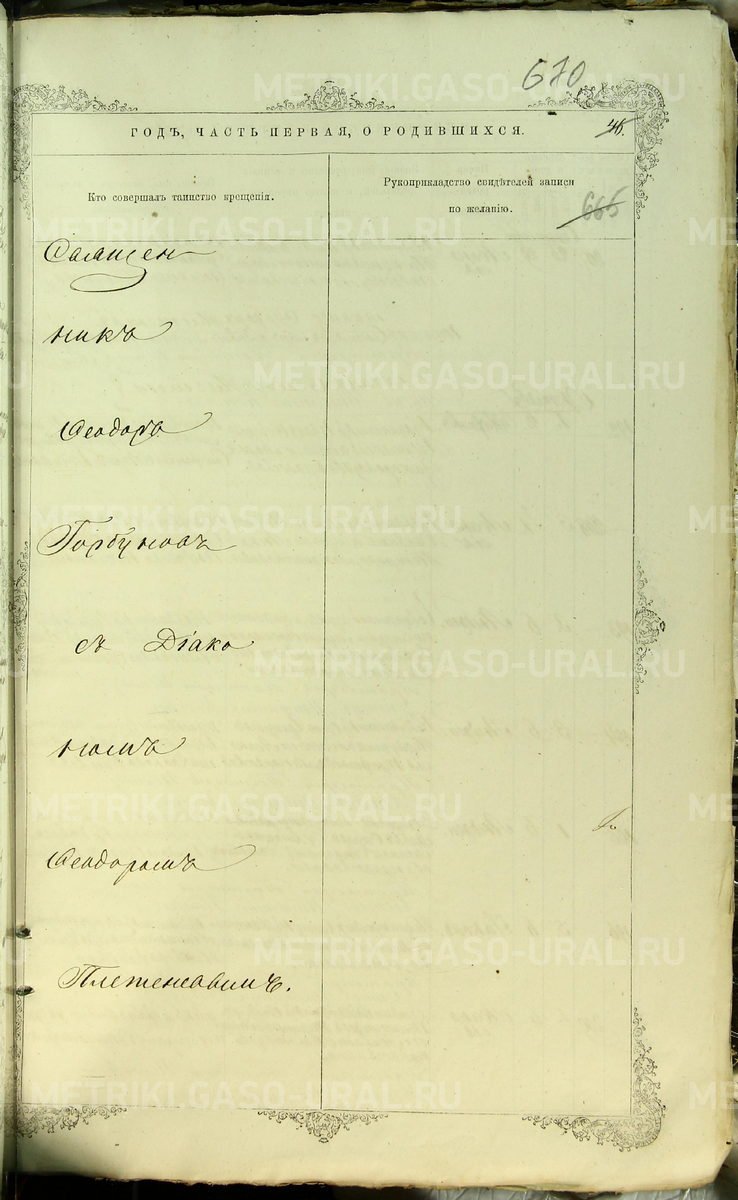 670
ГОДЪ, ЧАСТЬ ПЕРВАЯ, О РОДИВШИХСЯ.
46.
Кто совершалъ таинство крещенія.
Рукоприкладство свидѣтелей записи
по желанію.
665
Священ
никъ
Ѳеодоръ
Горбуновъ
съ Діако
номъ
Ѳеодоромъ
Плетеневымъ.
METRIKI.GASO-URAL.RU